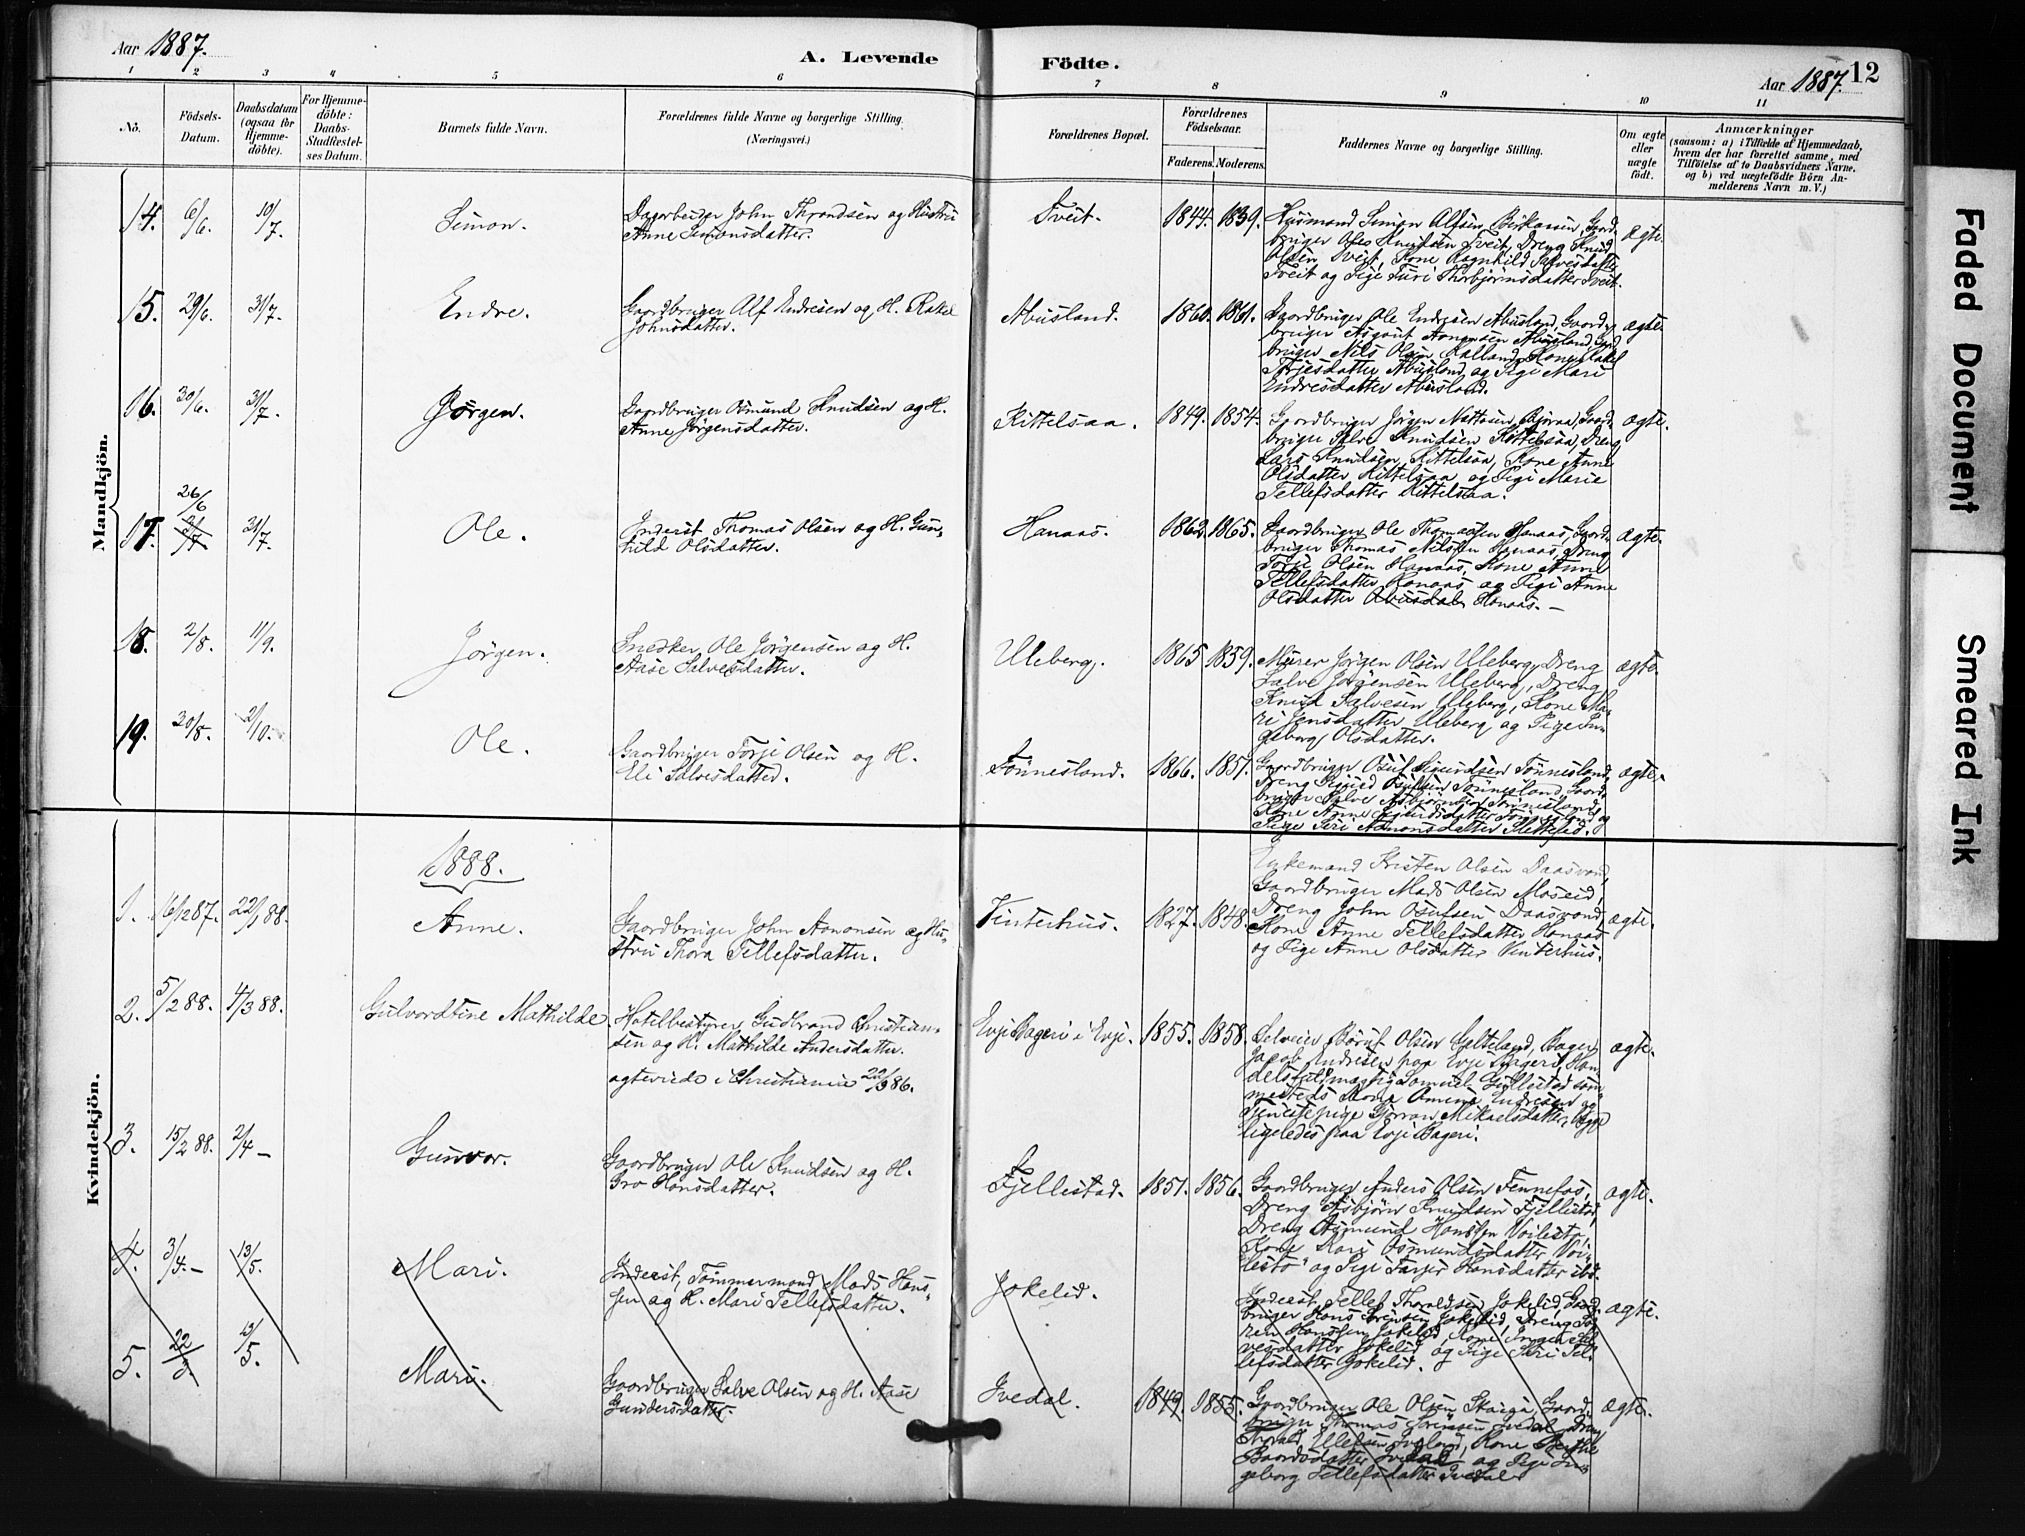 Aar 1887.
A. Levende Födte.
Aar 1887. 12
1 2 3 4 5 6 7 8 9 10 11
No.
Födsels-
Datum.
Daabsdatum
(ogsaa for
Hjemme-
döbte).
For Hjemme-
döbte:
Daabs-
Stadfæstel-
ses Datum.
Barnets fulde Navn.
Forældrenes fulde Navne og borgerlige Stilling.
(Næringsvei.)
Forældrenes Bopæl.
Forældrenes
Födselsaar.
Faderens. Moderens.
Faddernes Navne og borgerlige Stilling.
Om ægte
eller
uægte
födt.
Anmærkninger
(saasom: a) i Tilfælde af Hjemmedaab,
hvem der har forrettet samme, med
Tilföielse af to Daabsvidners Navne.
og b) ved uægtefödte Börn An-
melderens Navn m. V.)
Mandkjön.
14. 6/6. 10/7. Simon.
Dagarbeider John Throndsen og Hustru
Anne Simonsdatter.
Tveit. 1844. 1839.
Husmand Simon Alfsen Birkaasen, Gaard-
bruger Oles Knudsen Tveit, Dreng Knud
Olsen Tveit, Kone Ragnhild Salvesdatter
Tveit og Pige Turi Thorbjörnsdatter Tveit.
ægte.
15. 29/6. 31/7. Endre.
Gaardbruger Alf Endresen og H. Rakel
Johnsdatter.
Abusland. 1860. 1861.
Gaardbruger Ole Endresen Abusland, Gaard-
bruger Asgout Aanonsen Abusland, Gaard-
bruger Nils Olsen Kalland, Kone Rakel
Torjesdatter Abusland og Pige Mari
Endresdatter Abusland.
ægte
16. 30/6. 31/7. Jörgen.
Gaardbruger Osmund Knudsen og H.
Anne Jörgensdatter.
Kittelsaa. 1849. 1854.
Gaardbruger Jörgen Nottosen Bjoraa, Gaard-
bruger Salve Knudsen Kittelsaa, Dreng
Lars Knudsen Kittelsaa, Kone Anne
Olsdatter Kittelsaa og Pige Marie
Tellefsdatter Kittelsaa.
ægte.
17. 26/6 2/7 31/7. Ole.
Inderst Thomas Olsen og H. Gun-
hild Olsdatter.
Hanaas. 1862. 1865.
Gaardbruger Ole Thomassen Hanaas, Gaard-
bruger Thomas Nilssen Hanaas, Dreng
Torje Olsen Hanaas, Kone Anne
Tellefsdatter Hanaas og Pige Anne
Olsdatter Abusdal Hanaas. –
ægte.
18. 2/8. 11/9. Jörgen.
Snedker Ole Jörgensen og H.
Aase Salvesdatter.
Uleberg. 1865 1859.
Murer Jörgen Olsen Uleberg, Dreng
Salve Jörgensen Uleberg, Dreng
Knud Salvesen Uleberg, Kone Ma-
ri Jensdatter Uleberg og Pige In-
geborg Olsdatter.
ægte.
19. 20/8. 2/10. Ole.
Gaardbruger Torje Olsen og H.
Eli Salvesdatter.
Tönnesland. 1866. 1857.
Gaardbruger Osuf Sigurdsen Tönnesland,
Dreng Sigurd Osufsen Tönnesland, Gaard-
bruger Salve Asbjörnsen Tönnesland,
Kone Anne Sigurdsdatter Tönnesland og
Pige Siri Aanonsdatter
ægte.
Kvindekjön.
1888.
1. 16/12 87. 22/1 88. Anne.
Gaardbruger John Aanonsen og Hu-
stru Thora Tellefsdatter.
Vinterhus. 1827. 1848.
Enkemand Kristen Olsen Daasvand,
Gaardbruger Mads Olsen Moseid,
Dreng John Osufsen Daasvand,
Kone Anne Tellefsdatter Hanaas
og Pige Anne Olsdatter Vinterhus.
ægte.
2. 5/2 88. 4/3 88. Gulvordtine Mathilde.
Hotelbestyrer Gudbrand Christian-
sen og H. Mathilde Andersdatter.
ægteviede i Christiania 22/9 86.
Evje Bageri i Evje. 1855. 1858.
Selveier Börufs Olsen Galteland, Bager
Jacob Endresen fra Evje Bageri, Han-
delsfuldmægtig Samuel Gyllestad sam-
mesteds, Kone Amine Endresen og
Tjenestepige Gjöran Mikaelsdatter, begge
ligeledes fraa Evje Bageri.
ægte.
3. 15/2 88. 2/4 – Gunvor.
Gaardbruger Ole Knudsen og H.
Gro Hansdatter.
Fjellestad. 1851. 1856.
Gaardbruger Anders Olsen Fennefos,
Dreng Asbjörn Knudsen Fjellestad,
Dreng Asmund Hanssen Voilesto,
Kone Kari Osmundsdatter Voi-
lesto og Pige Tarjer Hansdatter ibd.
ægte.
4. 3/4. – 13/5. Mari.
Inderst, Tömmermand Mads Hans-
sen og H. Mari Tellefsdatter.
Jokelid.
Inderst Tellef Thoraldsen Jokelid, Gaard-
bruger Hans Sörensen Jokelid, Dreng Sö-
ren Hanssen Jokelid, Kone Inger Sal-
vesdatter Jokelid og Pige Siri Tel-
lefsdatter Jokelid.
ægte.
5. 22/3. 12/5. Mari.
Gaardbruger Salve Olsen og H. Aase
Gundersdatter.
Ivedal. 1849. 1855.
Gaardbruger Ole Olsen Skaiga, Gaard-
bruger Thomas Ivedal, Dreng
Thorald Ivedal, Kone Berthe
Baardsdatter Ivedal og Pige In-
geborg Tellefsdatter Ivedal
ægte.
Faded Document
Smeared Ink